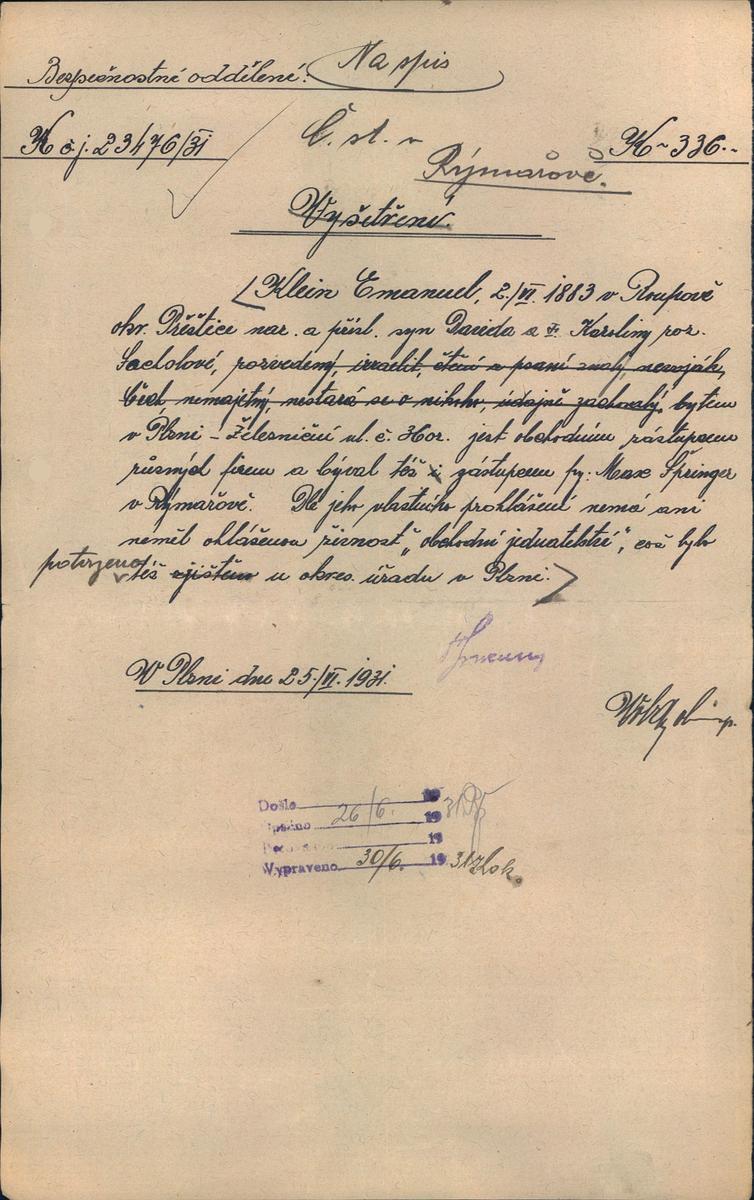 Bezpečnostné oddělení. Na spis
K č.j. 23476/31 Č. st. v K 336.-
Rýmařově.
Vyšetření.
Klein Emanuel, 2./VI. 1883 v Roupově
okr. Přeštice nar. a přísl. syn Davida a Karoliny roz.
rozvedený, israelit, čtení a psaní znalý, nevoják,
Čech, nemajetný, nestará se o nikoho, údajně zachovalý, bytem
v Plzni - Železniční ul. č. jest obchodním zástupcem
různých firem a býval též i zástupcem fy. Max Springer
v Rýmařově. Dle jeho vlastního prohlášení nemá ani
neměl ohlášenou živnost „obchodní jednatelství“, což bylo
potvrzeno též zjištěno u okres. úřadu v Plzni.
V Plzni dne 25./VI. 1931.
Došlo 26/6. 19 31
19
19
Vypraveno 30/6. 19 31